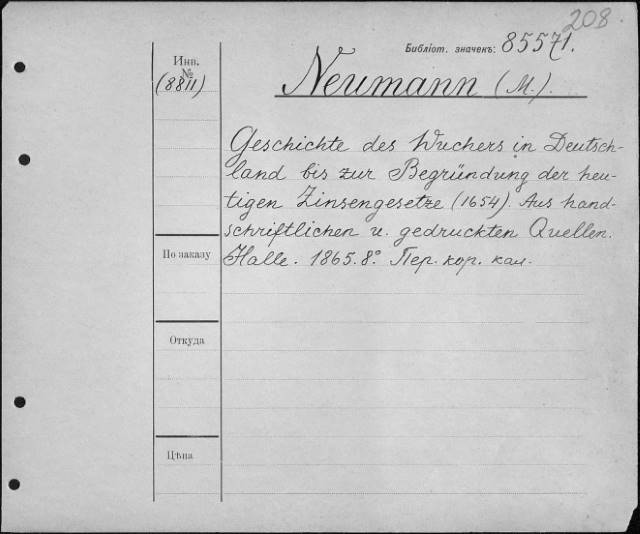 208.
Библіот. значекъ: 85571.
Инв.
№
(8811)
Neumann (M.).
Geschichte des Wuchers in Deutsch-
land bis zur Begründung der heu-
tigen Zinsengesetze (1654). Aus hand-
schriftlichen u. gedruckten Quellen.
Halle. 1865. 8.° Пер. кор. кал.
По заказу
Откуда
Цѣна